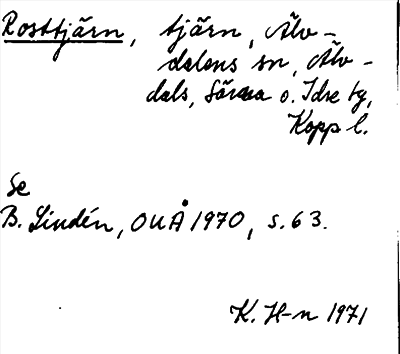 Rosttjärn, tjärn, Älv-
dalens sn, Älv-
dals, Särna o. Idre tg,
Kopp l.
Se
B. Lindén, OUÅ 1970, s. 63.
K. H-n 1971